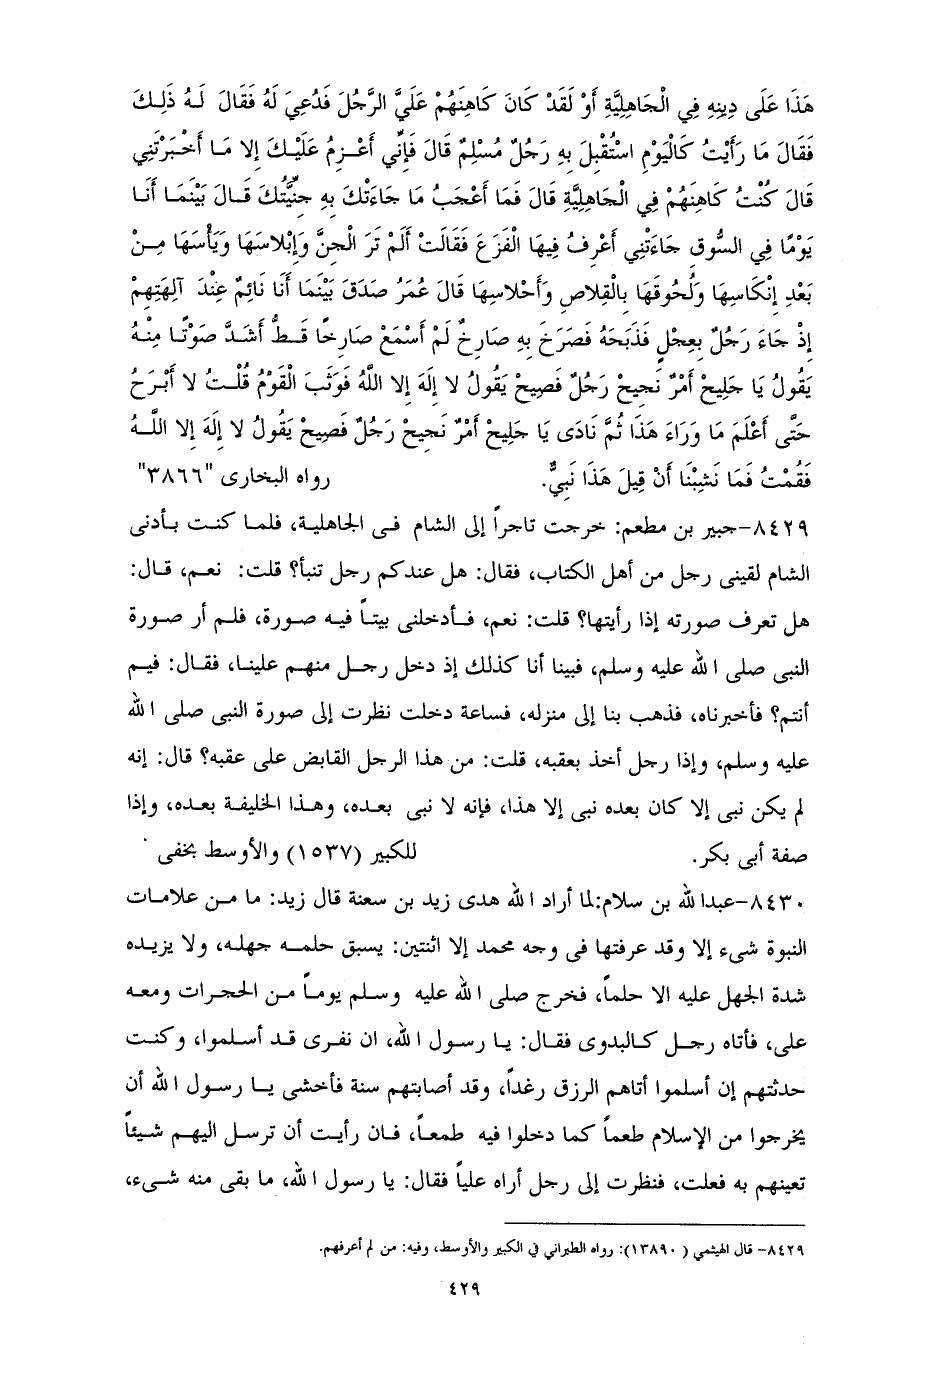 هَذَا عَلَى دِينِهِ فِي الْجَاهِلِيَّةِ أَوْ لَقَدْ كَانَ كَاهِنَهُمْ عَلَيَّ الرَّجُلَ فَدُعِيَ لَهُ فَقَالَ لَهُ ذَلِكَ
فَقَالَ مَا رَأَيْتُ كَالْيَوْمِ اسْتُقْبِلَ بِهِ رَجُلٌ مُسْلِمٌ قَالَ فَإِنِّي أَعْزِمُ عَلَيْكَ إِلا مَا أَخْبَرْتَنِي
قَالَ كُنْتُ كَاهِنَهُمْ فِي الْجَاهِلِيَّةِ قَالَ فَمَا أَعْجَبُ مَا جَاءَتْكَ بِهِ جِنِّيَّتُكَ قَالَ بَيْنَمَا أَنَا
يَوْمًا فِي السُّوقِ جَاءَتْنِي أَعْرِفُ فِيهَا الْفَزَعَ فَقَالَتْ أَلَمْ تَرَ الْجِنَّ وَإِبْلاسَهَا وَيَأْسَهَا مِنْ
بَعْدِ إِنْكَاسِهَا وَلُحُوقَهَا بِالْقِلاصِ وَأَحْلاسِهَا قَالَ عُمَرُ صَدَقَ بَيْنَمَا أَنَا نَائِمٌ عِنْدَ آلِهَتِهِمْ
إِذْ جَاءَ رَجُلٌ بِعِجْلٍ فَذَبَحَهُ فَصَرَخَ بِهِ صَارِخٌ لَمْ أَسْمَعْ صَارِخًا قَطُّ أَشَدَّ صَوْتًا مِنْهُ
يَقُولُ يَا جَلِيحْ أَمْرٌ نَجِيحْ رَجُلٌ فَصِيحْ يَقُولُ لا إِلَهَ إِلا اللَّهُ فَوَثَبَ الْقَوْمُ قُلْتُ لا أَبْرَحُ
حَتَّى أَعْلَمَ مَا وَرَاءَ هَذَا ثُمَّ نَادَى يَا جَلِيحْ أَمْرٌ نَجِيحْ رَجُلٌ فَصِيحْ يَقُولُ لا إِلَهَ إِلا اللَّهُ
فَقُمْتُ فَمَا نَشِبْنَا أَنْ قِيلَ هَذَا نَبِيٌّ. رواه البخارى "٣٨٦٦"
٨٤٢٩-جبير بن مطعم: خرجت تاجراً إلى الشام فى الجاهلية، فلما كنت بأدنى
الشام لقينى رجل من أهل الكتاب، فقال: هل عندكم رجل تنبأ؟ قلت: نعم، قال:
هل تعرف صورته إذا رأيتها؟ قلت: نعم، فأدخلنى بيتاً فيه صورة، فلم أر صورة
النبى صلى الله عليه وسلم، فبينا أنا كذلك إذ دخل رجل منهم علينا، فقال: فيم
أنتم؟ فأخبرناه، فذهب بنا إلى منزله، فساعة دخلت نظرت إلى صورة النبى صلى الله
عليه وسلم، وإذا رجل أخذ بعقبه، قلت: من هذا الرجل القابض على عقبه؟ قال: إنه
لم يكن نبى إلا كان بعده نبى إلا هذا، فإنه لا نبى بعده، وهذا الخليفة بعده، وإذا
صفة أبى بكر. للكبير (١٥٣٧) والأوسط بخفى
٨٤٣٠-عبدالله بن سلام:لما أراد الله هدى زيد بن سعنة قال زيد: ما من علامات
النبوة شىء إلا وقد عرفتها فى وجه محمد إلا اثنتين: يسبق حلمه جهله، ولا يزيده
شدة الجهل عليه الا حلماً، فخرج صلى الله عليه وسلم يوماً من الحجرات ومعه
على، فأتاه رجل كالبدوى فقال: يا رسول الله، ان نفرى قد أسلموا، وكنت
حدثتهم إن أسلموا أتاهم الرزق رغداً، وقد أصابتهم سنة فأخشى يا رسول الله أن
يخرجوا من الإسلام طعماً كما دخلوا فيه طمعاً، فان رأيت أن ترسل اليهم شيئاً
تعينهم به فعلت، فنظرت إلى رجل أراه علياً فقال: يا رسول الله، ما بقى منه شىء،
٨٤٢٩- قال الهيثمي (١٣٨٩٠): رواه الطبراني في الكبير والأوسط، وفيه: من لم أعرفهم.
٤٢٩